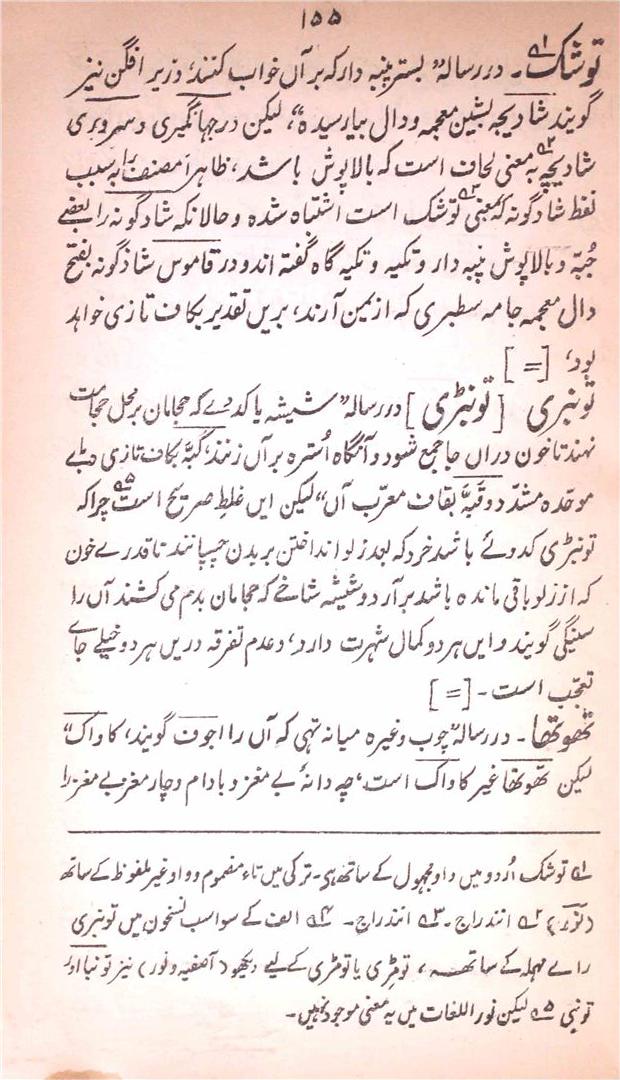 ۱۵۵
توشک۔ در رسالہ "بستر پنبہ دار کہ بر آں خواب کنند، و زیر افگن نیز
گویند شادیچہ بشین معجمہ و دال بیار سیدہ"، لیکن در جہانگیری و سروری
شادیچہ بہ معنی لحاف است کہ بالا پوش باشد، ظاہرا مصنف را بہ سبب
نقط شادگونہ کہ بمعنی توشک است اشتباہ شدہ و حالانکہ شادگونہ را بعضے
جُبّہ و بالاپوش پنبہ دار و تکیہ و تکیہ گاہ گفتہ اند و در قاموس شاذگونہ بفتح
دال معجمہ جامہ سطبری کہ از یمن آرند، بریں تقدیر بکاف تازی خواہد
بود، [=]
تونبری [تونبڑی] در رسالہ "شیشہ یا کدوے کہ حجامان بر محل حجامت
نہند تا خون دراں جا جمع شود و آنگاہ اُسترہ بر آں زنند، کبّہ بکاف تازی و بائے
موحدہ مشدّد و قبّہ بقاف معرّب آں" لیکن ایں غلط صریح است چراکہ
تونبڑی کدوئے باشد خرد کہ بعد زلو انداختن بر بدن چسپانند تا قدرے خون
کہ از زلو باقی ماندہ باشد برآرد و شیشہ شاخے کہ حجامان بدم می کشند آں را
سینگی گویند و ایں ہر دو کمال شہرت دارد، و عدم تفرقہ دریں ہر دو خیلے جاے
تعجّب است۔ [=]
تھوتھا۔ در رسالہ "چوب وغیرہ میانہ تہی کہ آں را اجوف گویند، کاواک"
لیکن تھوتھا غیر کاواک است، چہ دانۂ بے مغز و بادام و چار مغز بے مغز را
۱؎ توشک اُردو میں واو مجہول کے ساتھ ہی۔ ترکی میں تاء مضموم و واو غیر ملفوظ کے ساتھ
(نور) ۲؎ انندراج۔ ۳؎ انندراج۔ ۴؎ الف کے سوا سب نسخوں میں تونبری
راے مہملہ کے ساتھ ہے، تومڑی یا تومڑی کے لیے دیکھو (آصفیہ و نور) نیز تونبا اور
تونبی ۵؎ لیکن نور اللغات میں یہ معنی موجود نہیں۔